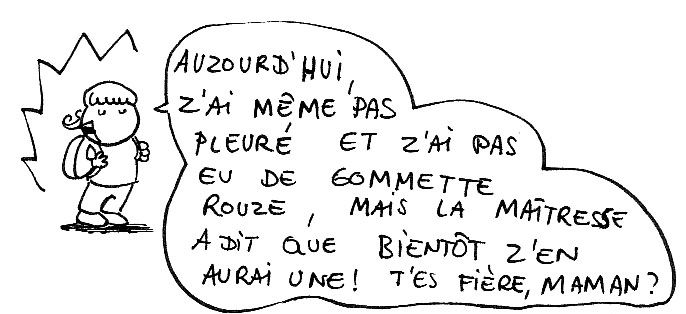 AUZOURD'HUI,
Z'AI MÊME PAS
PLEURÉ ET Z'AI PAS
EU DE GOMMETTE
ROUZE, MAIS LA MAÎTRESSE
A DIT QUE BIENTÔT Z'EN
AURAI UNE! T'ES FIÈRE, MAMAN?